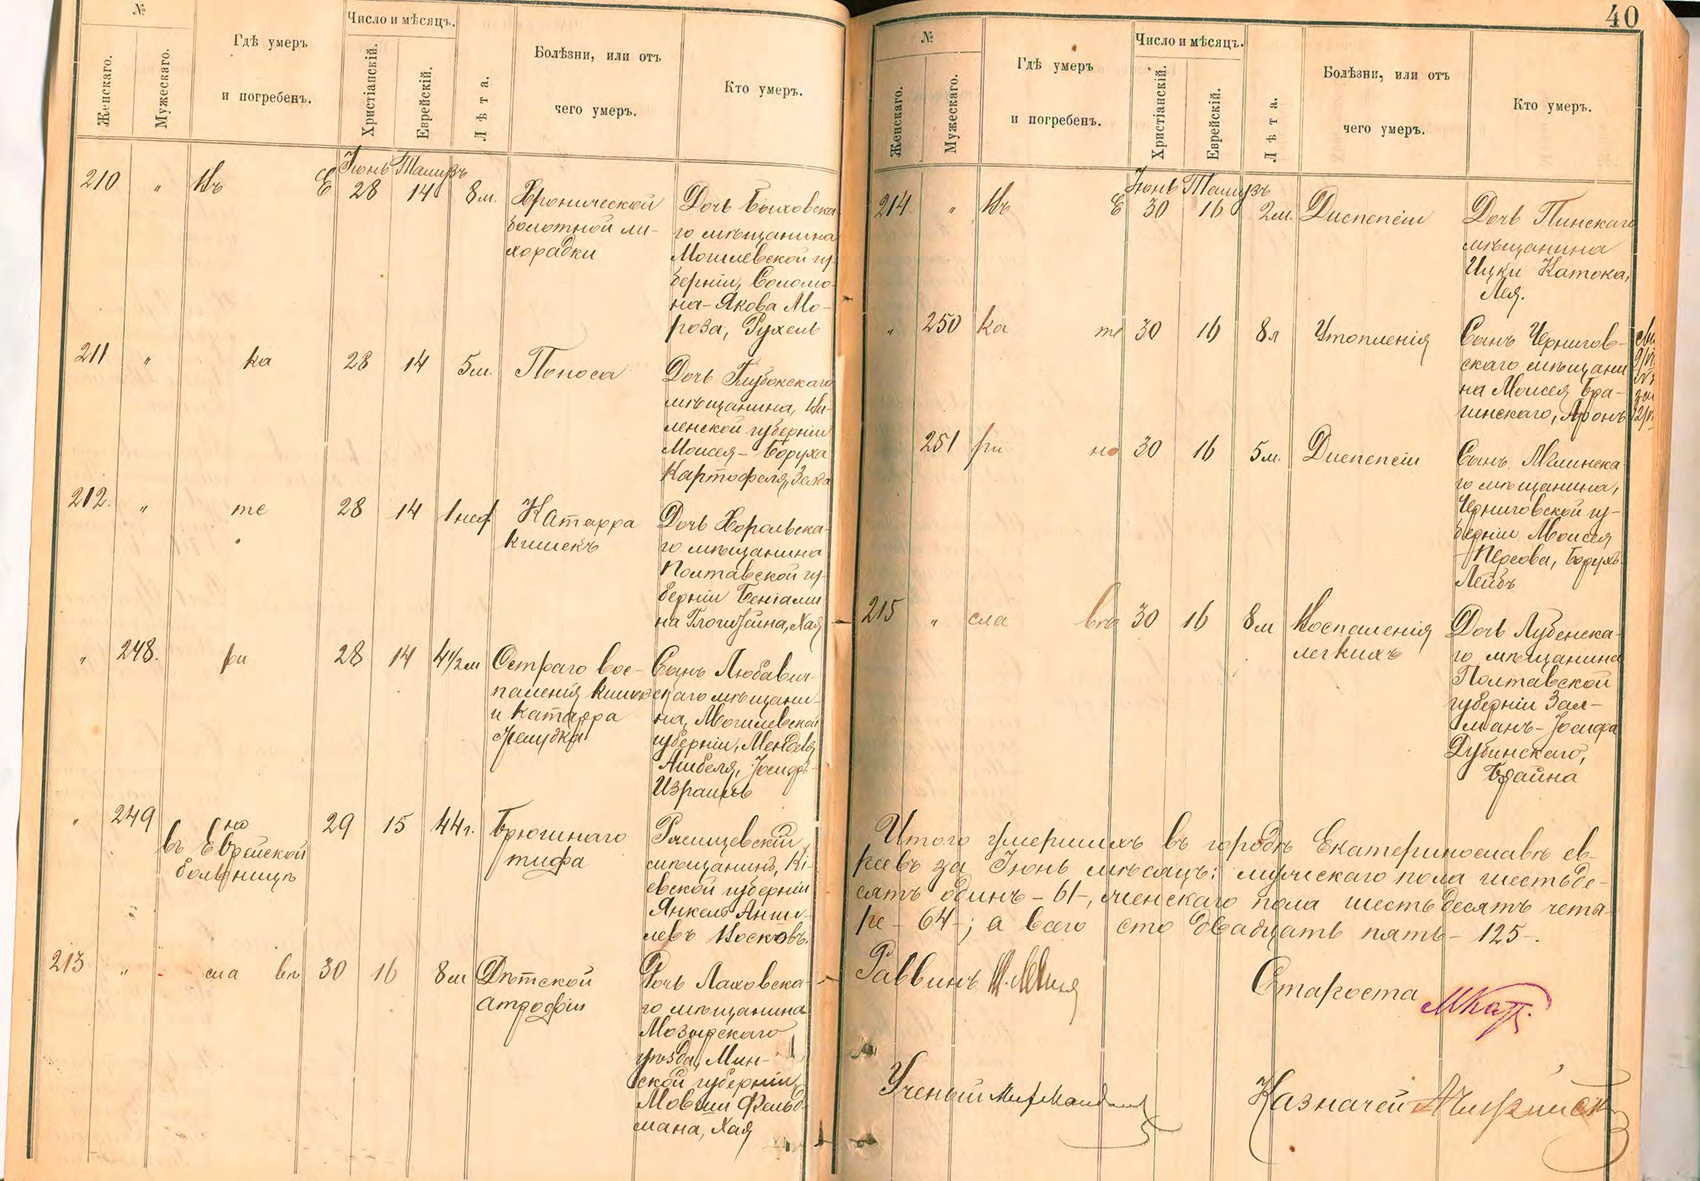 №
Женскаго.
Мужескаго.
Гдѣ умеръ
и погребенъ.
Число и мѣсяцъ.
Христіанскій.
Еврейскій.
Лѣта.
Болѣзни, или отъ
чего умеръ.
Кто умеръ.
Іюнь Тамузъ
210 „ Въ Е 28 14 8 м. Хронической
болотной ли-
хорадки
Дочь Быховска-
го мѣщанина
Могилевской гу-
берніи, Соломо-
на-Якова Мо-
роза, Рухель
211 „ ка 28 14 5 м. Поноса
Дочь Глубокскаго
мѣщанина, Ви-
ленской губерніи
Моисея-Боруха
Картофеля, Зелда
212. „ те 28 14 1 нед Катарра
кишекъ
Дочь Хорольска-
го мѣщанина
Полтавской гу-
берніи Беніами
на Хая
„ 248. ри 28 14 4½ м Остраго вос-
паленія кишекъ
и катарра
желудка
Сынъ Любавич-
скаго мѣщани-
на, Могилевской
губерніи, Менделя
Іосифъ-
Израиль
„ 249 но
въ Еврейской
больницѣ
29 15 44 г. Брюшнаго
тифа
Ржищевскій
мѣщанинъ, Кі-
евской губерніи
Янкель Анше-
левъ Восковъ.
213 „ сла вѣ 30 16 8 м Дѣтской
атрофіи
Дочь Лаховска-
го мѣщанина
Мозырскаго
уѣзда, Мин-
ской губерніи,
Мовши Фельд
мана, Хая
40
№
Женскаго.
Мужескаго.
Гдѣ умеръ
и погребенъ.
Число и мѣсяцъ.
Христіанскій.
Еврейскій.
Лѣта.
Болѣзни, или отъ
чего умеръ.
Кто умеръ.
Іюнь Тамузъ
214 „ Въ Е 30 16 2 м. Диспепсіи
Дочь Пинскаго
мѣщанина
Ицки Катока,
Лея.
„ 250 ка те 30 16 8 л Утопленія
Сынъ Чернигов-
скаго мѣщани
на Моисея Бра-
гинскаго, Аронъ
251 ри но 30 16 5 м. Диспепсіи
Сынъ Млинска-
го мѣщанина,
Черниговской гу-
берніи Моисея
Персова, Борухъ-
Лейбъ
215 „ сла вѣ 30 16 8 м Воспаленія
легкихъ
Дочь Лубенска-
го мѣщанина
Полтавской
губерніи Зал-
манъ-Іосифа
Дубинскаго,
Брайна
Итого умершихъ въ городѣ Екатеринославѣ ев-
реевъ за Іюнь мѣсяцъ: мужскаго пола шестьде-
сятъ одинъ - 61 -, женскаго пола шестьдесятъ четы-
ре - 64 -; а всего сто двадцать пять - 125 -.
Раввинъ
Староста
Ученый
Казначей